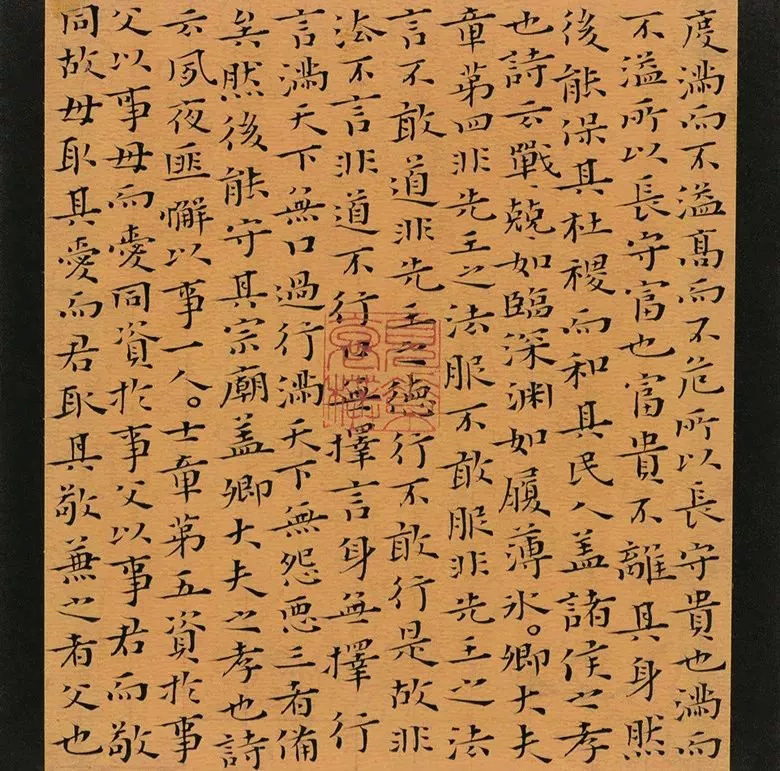 度滿而不溢高而不危所以長守貴也滿而
不溢所以長守富也富貴不離其身然
後能保其社稷而和其民人盖諸侯之孝
也詩云戰〻兢〻如臨深渊如履薄氷。卿大夫
章第四非先王之法服不敢服非先王之法
言不敢道非先王之德行不敢行是故非
法不言非道不行口無擇言身無擇行
言滿天下無口過行滿天下無怨惡三者備
矣然後能守其宗廟盖卿大夫之孝也詩
云夙夜匪懈以事一人。士章第五資於事
父以事母而愛同資於事父以事君而敬
同故母取其愛而君取其敬兼之者父也